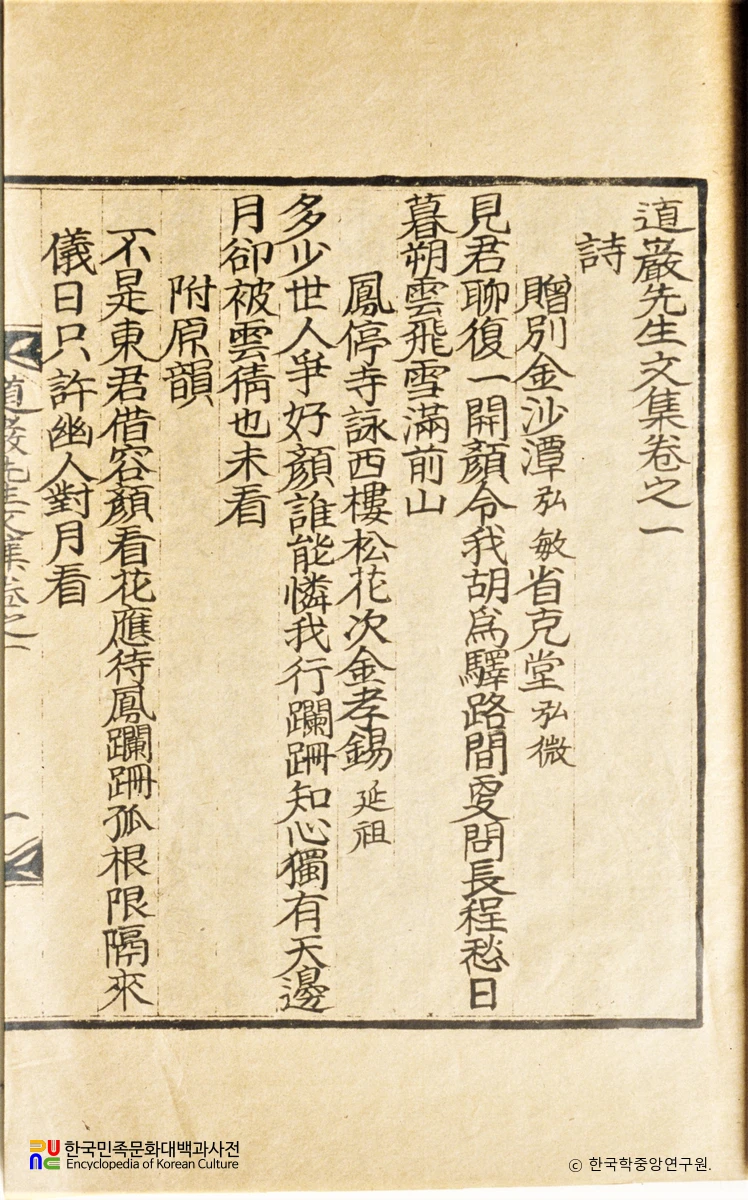 道巖先生文集卷之一
詩
贈別金沙潭弘敏省克堂弘微
見君聊復一開顔令我胡爲驛路間更問長程愁日
暮朔雲飛雪滿前山
鳳停寺詠西樓松花次金孝錫延祖
多少世人爭好顔誰能憐我行躝跚知心獨有天邊
月卻被雲猜也未看
附原韻
不是東君借容顔看花應待鳳躝跚孤根限隔來
儀日只許幽人對月看
道巖先生文集卷之一
한국민족문화대백과사전
Encyclopedia of Korean Culture
ⓒ 한국학중앙연구원.